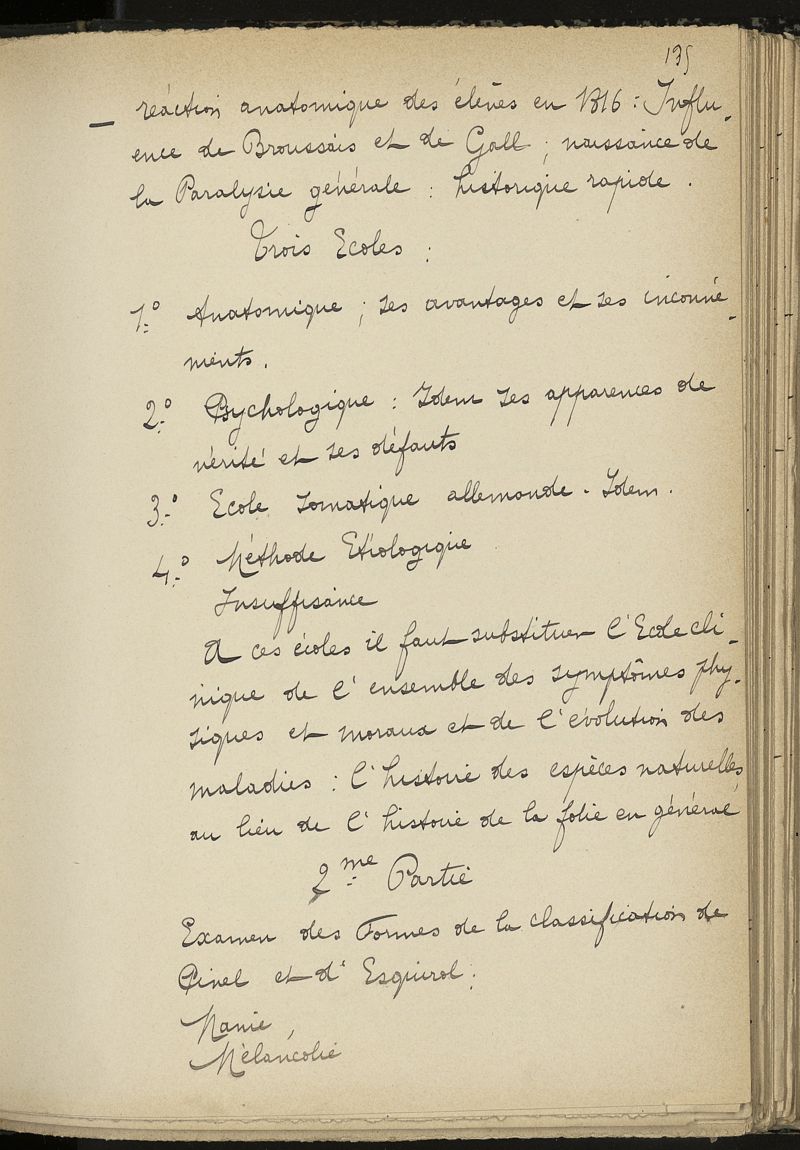 135
— réaction anatomique des élèves en 1816 : Influ-
ence de Broussais et de Gall ; naissance de
la Paralysie générale : historique rapide .
Trois Ecoles :
1.° Anatomique ; ses avantages et ses inconvé-
nients .
2.° Psychologique : Idem ses apparences de
vérité et ses défauts
3.° Ecole somatique allemande - Idem .
4.° Méthode Etiologique
Insuffisance
A ces écoles il faut substituer l'Ecole cli-
nique de l'ensemble des symptômes phy-
siques et moraux et de l'évolution des
maladies : l'histoire des espèces naturelles,
au lieu de l'histoire de la folie en général
2.me Partie
Examen des Formes de la classification de
Pinel et d'Esquirol :
Manie ,
Mélancolie